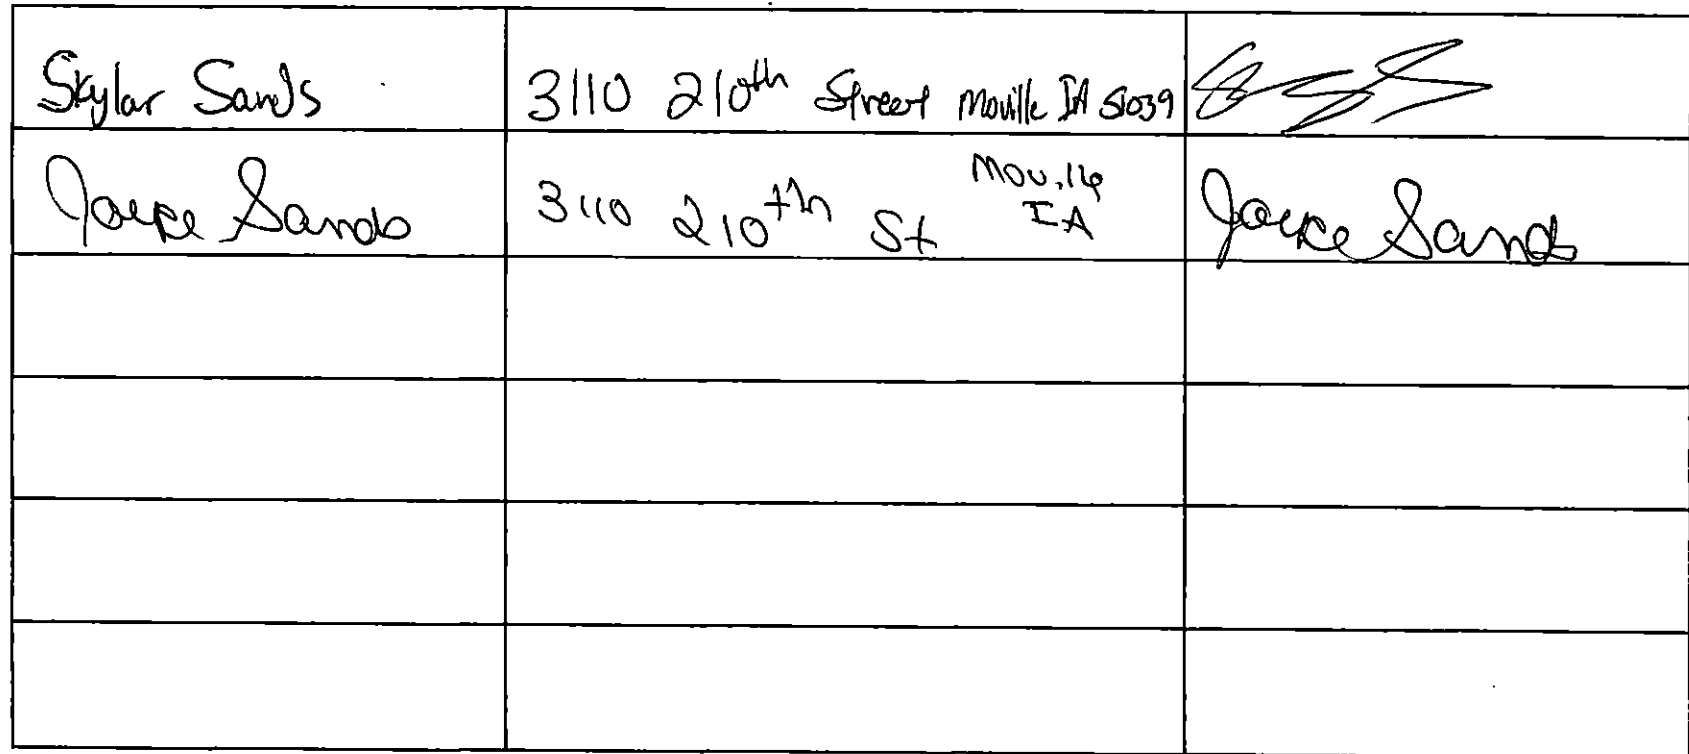 Skylar Sands 3110 210th Street Moville IA 51039
Joyce Sands 3110 210th St Moville IA Joyce Sands